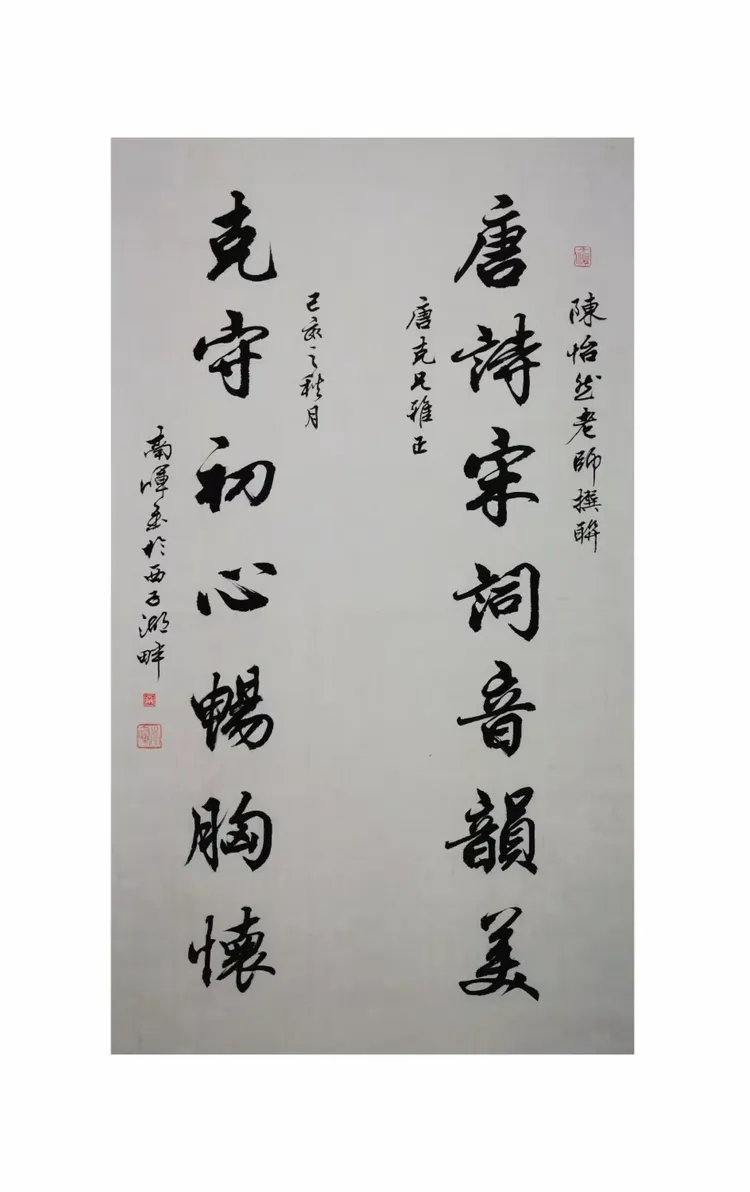 陳怡然老師撰聯
唐詩宋詞音韻美
唐克兄雅正
己亥之秋月
克守初心暢胸懷
於西子湖畔